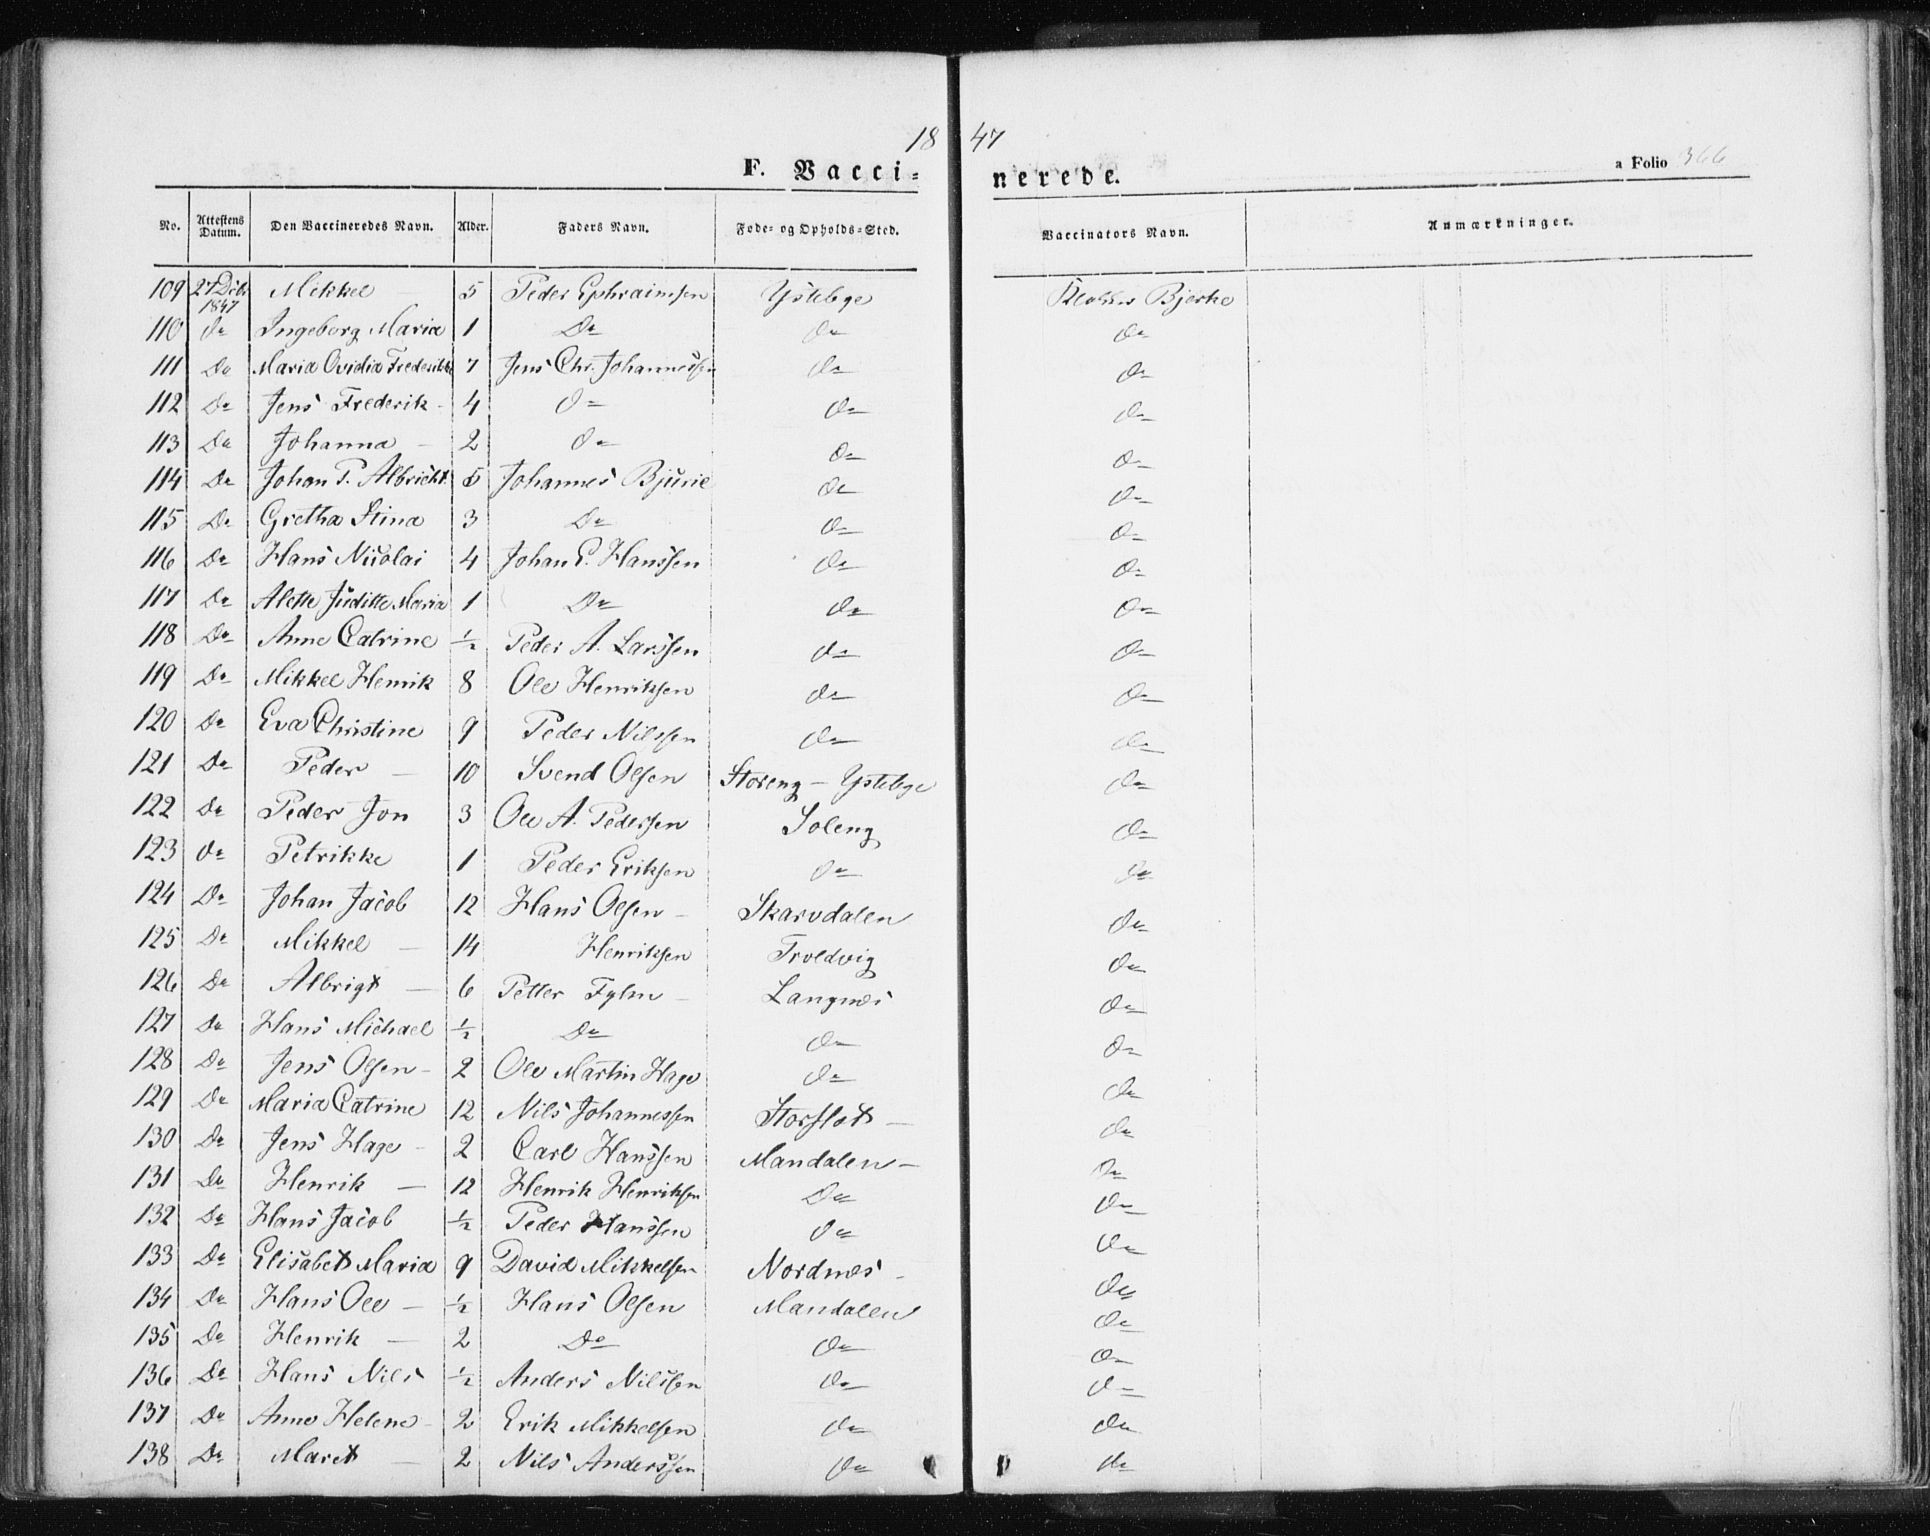 18 47
F. Vacci- nerede. a Folio 366
No. Attestens Datum. Den Vaccineredes Navn. Alder. Faders Navn. Føde- og Opholds-Sted. Vaccinators Navn. Anmærkninger.
109 27 Dcbr 1847 Mikkel — 5 Peder Ephraimsen Ystebye Klokker Bjerke
110 Do Ingeborg Maria 1 Do Do Do
111 Do Maria Ovidia Frederikke 7 Jens Chr. Johannessen Do Do
112 Do Jens Frederik - 4 Do Do Do
113 Do Johanna — 2 Do Do Do
114 Do Johan P. Albricht 5 Johannes Bjurie Do Do
115 Do Gretha Stina 3 Do Do Do
116 Do Hans Nicolai 4 Johan E. Hanssen Do Do
117 Do Alette Juditte Maria 1 Do Do Do
118 Do Anne Catrine ½ Peder A. Larssen Do Do
119 Do Mikkel Henrik 8 Ole Henriksen Do Do
120 Do Eva Christine 9 Peder Nilssen Do Do
121 Do Peder — 10 Svend Olsen Storeng - Ystebye Do
122 Do Peder Jon 3 Ole A. Pedersen Soleng Do
123 Do Petrikke 1 Peder Eriksen Do Do
124 Do Johan Jacob 12 Hans Olsen - Skarvdalen Do
125 Do Mikkel — 14 Henriksen Troldvig Do
126 Do Albrigt — 6 Petter Fylm - Langnæs Do
127 Do Hans Michael ½ Do Do Do
128 Do Jens Olsen - 2 Ole Martin Hage Do Do
129 Do Maria Catrine 12 Nils Johannessen Storslet — Do
130 Do Jens Hage - 2 Carl Hanssen Mandalen — Do
131 Do Henrik — 12 Henrik Henriksen Do Do
132 Do Hans Jacob ½ Peder Hanssen Do Do
133 Do Elisabet Maria 9 David Mikkelsen Nordnæs - Do
134 Do Hans Ole — ½ Hans Olsen Mandalen Do
135 Do Henrik — 2 Do Do Do
136 Do Hans Nils ½ Anders Nilssen Do Do
137 Do Anne Helene - 2 Erik Mikkelsen Do Do
138 Do Maret — 2 Nils Anderssen Do Do